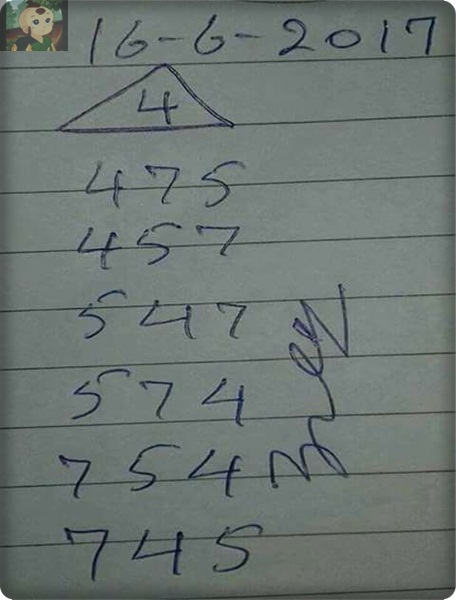 16-6-2017
4
475
457
547
574
754
745